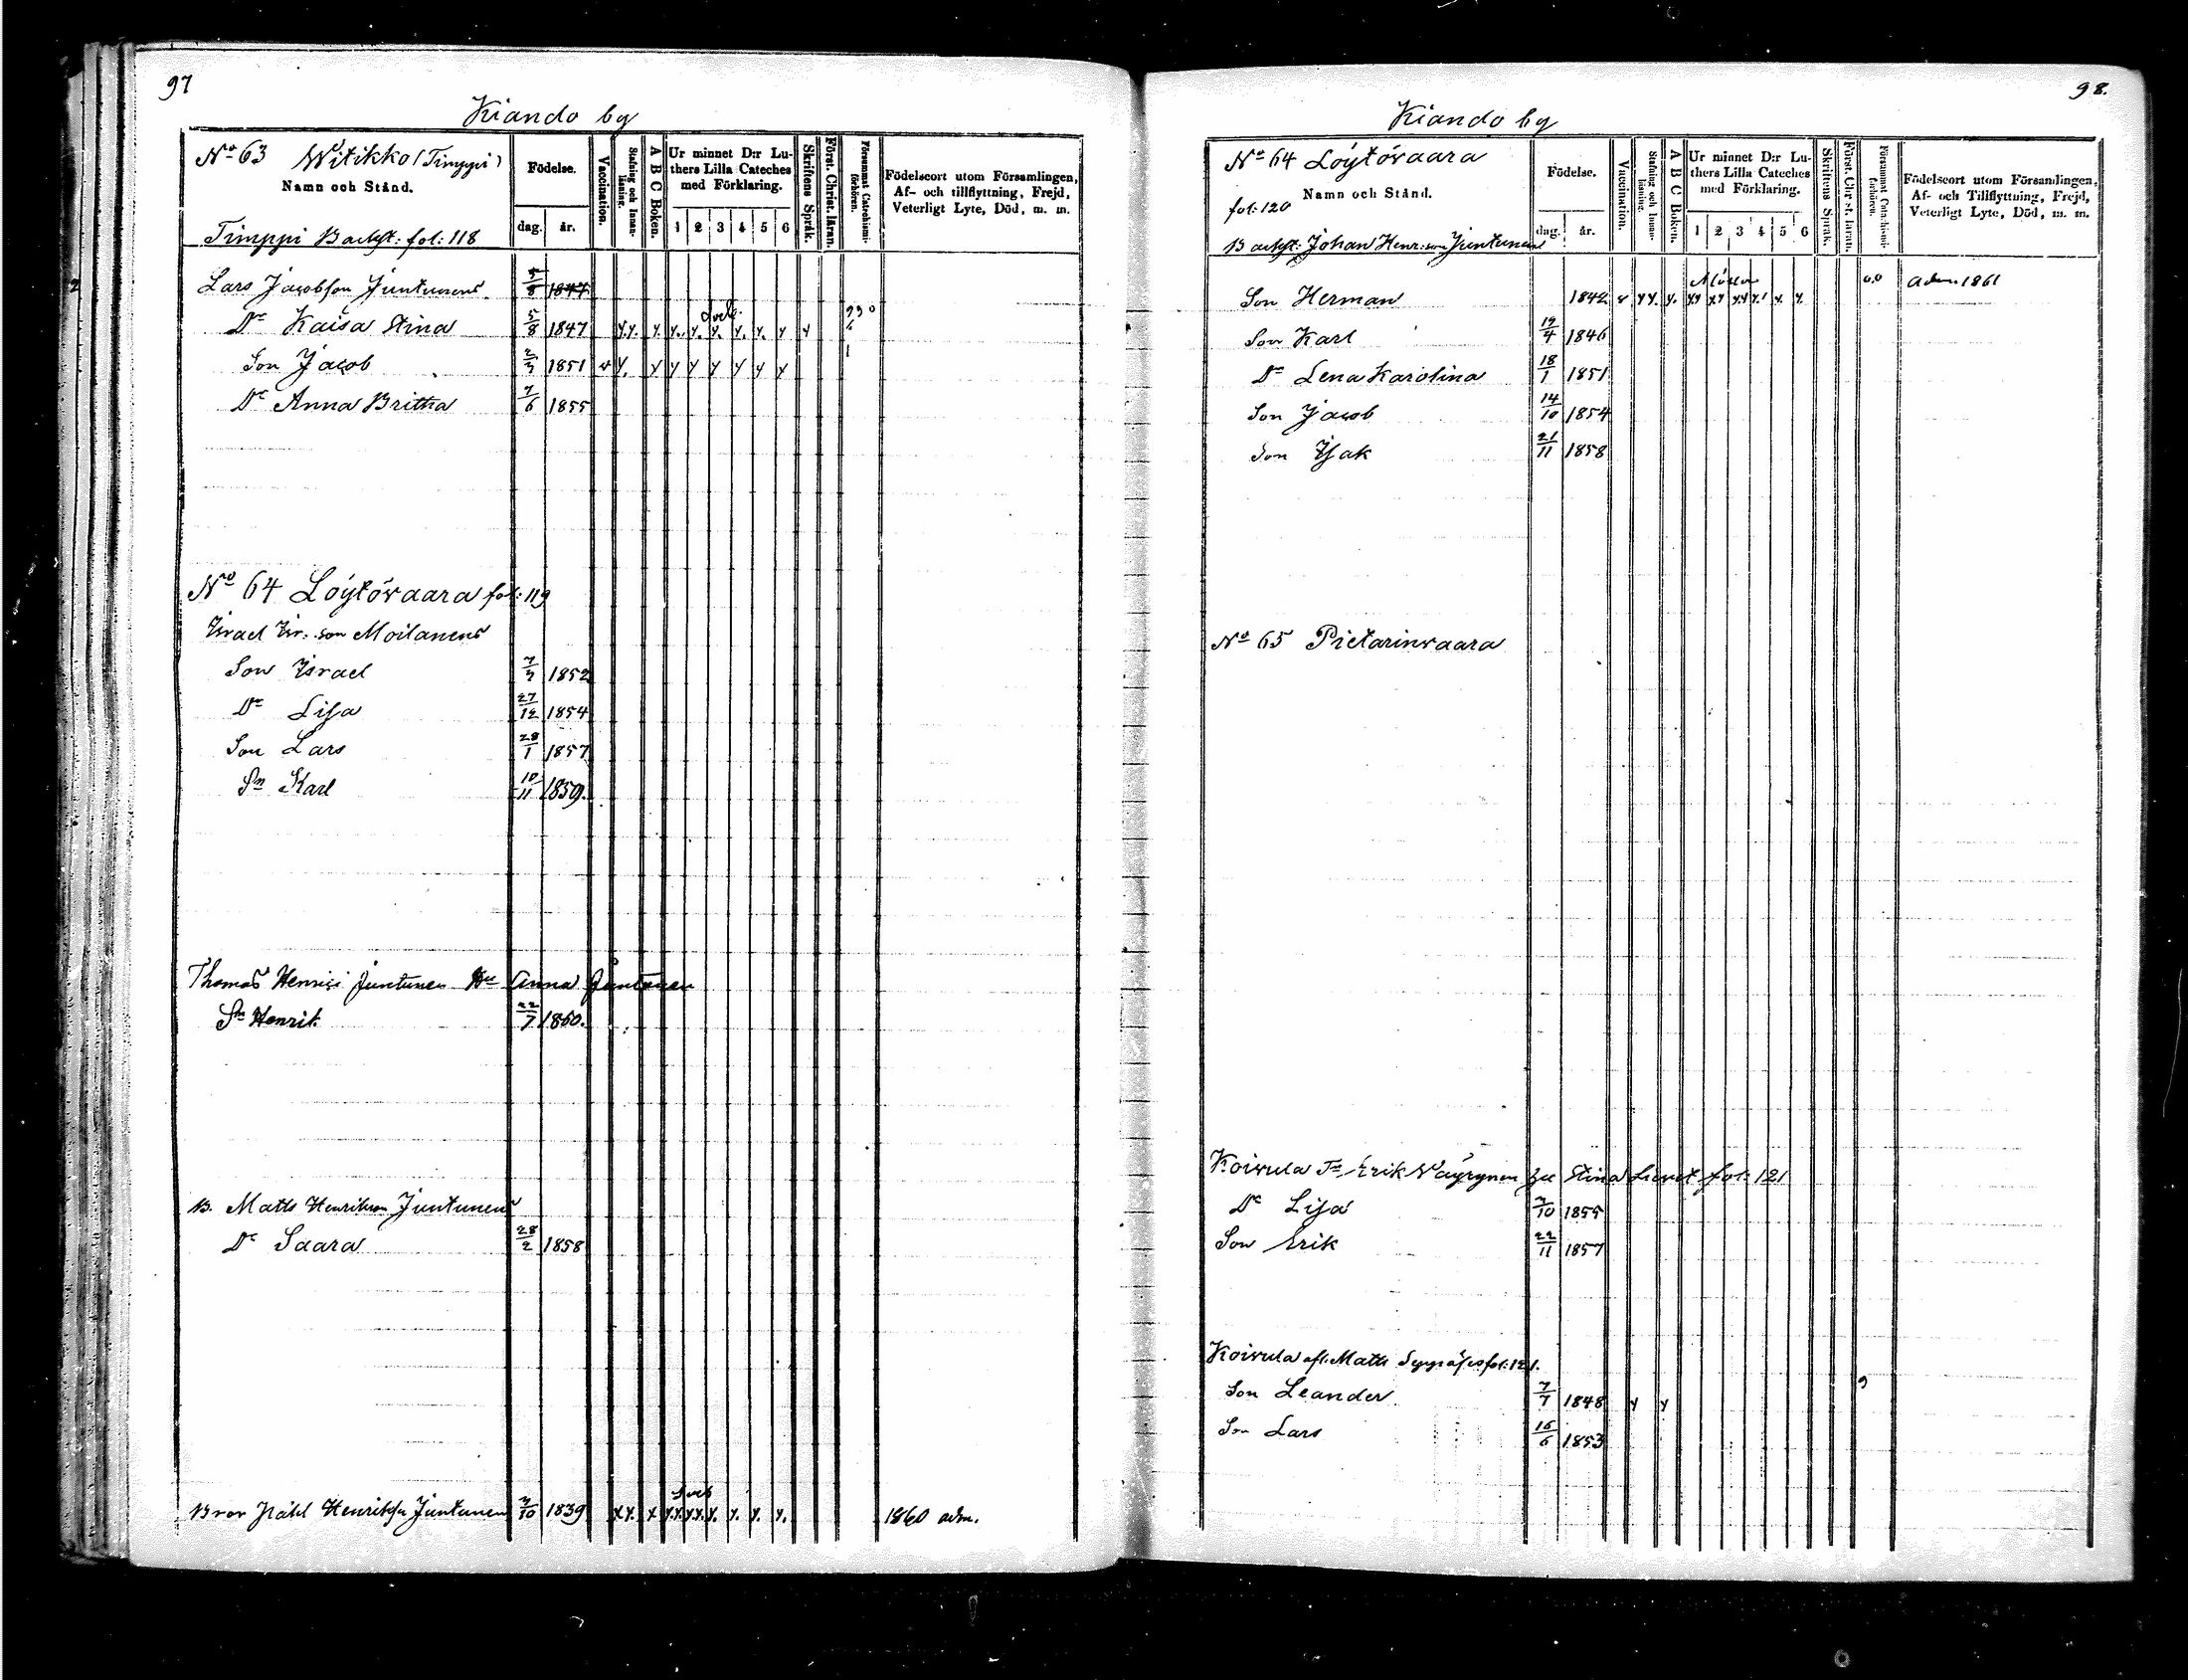 97
Kiando by
No 63 Witikko (Timppi)
Namn och Stånd.
Födelse.
dag. år.
Vaccination.
Stafning och Innanläsning.
A B C Boken.
Ur minnet D:r Luthers Lilla Cateches med Förklaring.
1 2 3 4 5 6
Skriftens Språk.
Först. Christ. läran.
Försummat Catechismiförhören.
Födelseort utom Församlingen,
Af- och tillflyttning, Frejd,
Veterligt Lyte, Död, m. m.
Timppi Backst: fol: 118
Lars Jacobson Juntunens 5/8 1847
Dr Kaisa Stina 5/8 1847 y.y. y. y. y. y. y. y. y y
Son Jacob 2/7 1851 v y. y y y y y y y
Dr Anna Britha 7/6 1855
No 64 Löytövaara fol: 119
Israel Isr: son Moilanens
Son Israel 7/7 1852
Dr Lisa 27/12 1854
Son Lars 28/1 1857
Sn Karl 10/11 1859.
Thomas Henrici Juntunen Hu Anna Juntunen
Sn Henrik 22/7 1860.
B. Matts Henrikson Juntunens
Dr Saara 28/2 1858
Bror Påhl Henriksn Juntunen 7/10 1839 x y. x y.y. y.y. y. y. y. y. 1860 adm.
98.
Kiando by
No 64 Löytövaara
Namn och Stånd.
fol: 120
Födelse.
dag. år.
Vaccination.
Stafning och Innanläsning.
A B C Boken.
Ur minnet D:r Luthers Lilla Cateches med Förklaring.
1 2 3 4 5 6
Skriftens Språk.
Först. Christ. läran.
Försummat Catechismiförhören.
Födelseort utom Församlingen,
Af- och Tillflyttning, Frejd,
Veterligt Lyte, Död, m. m.
Backst: Johan Henr: son Juntunens
Son Herman 1842 adm 1861
Son Karl 19/4 1846
Dr Lena Karolina 18/1 1851
Son Jacob 14/10 1854
Son Isak 21/11 1858
No 65 Pietarinvaara
Koivula Erik Väyrynen Stina fol: 121
Dr Lisa 7/10 1855
Son Erik 22/11 1857
Koivula Matts fol: 121.
Son Leander 7/7 1848 y y 9
Son Lars 16/6 1853